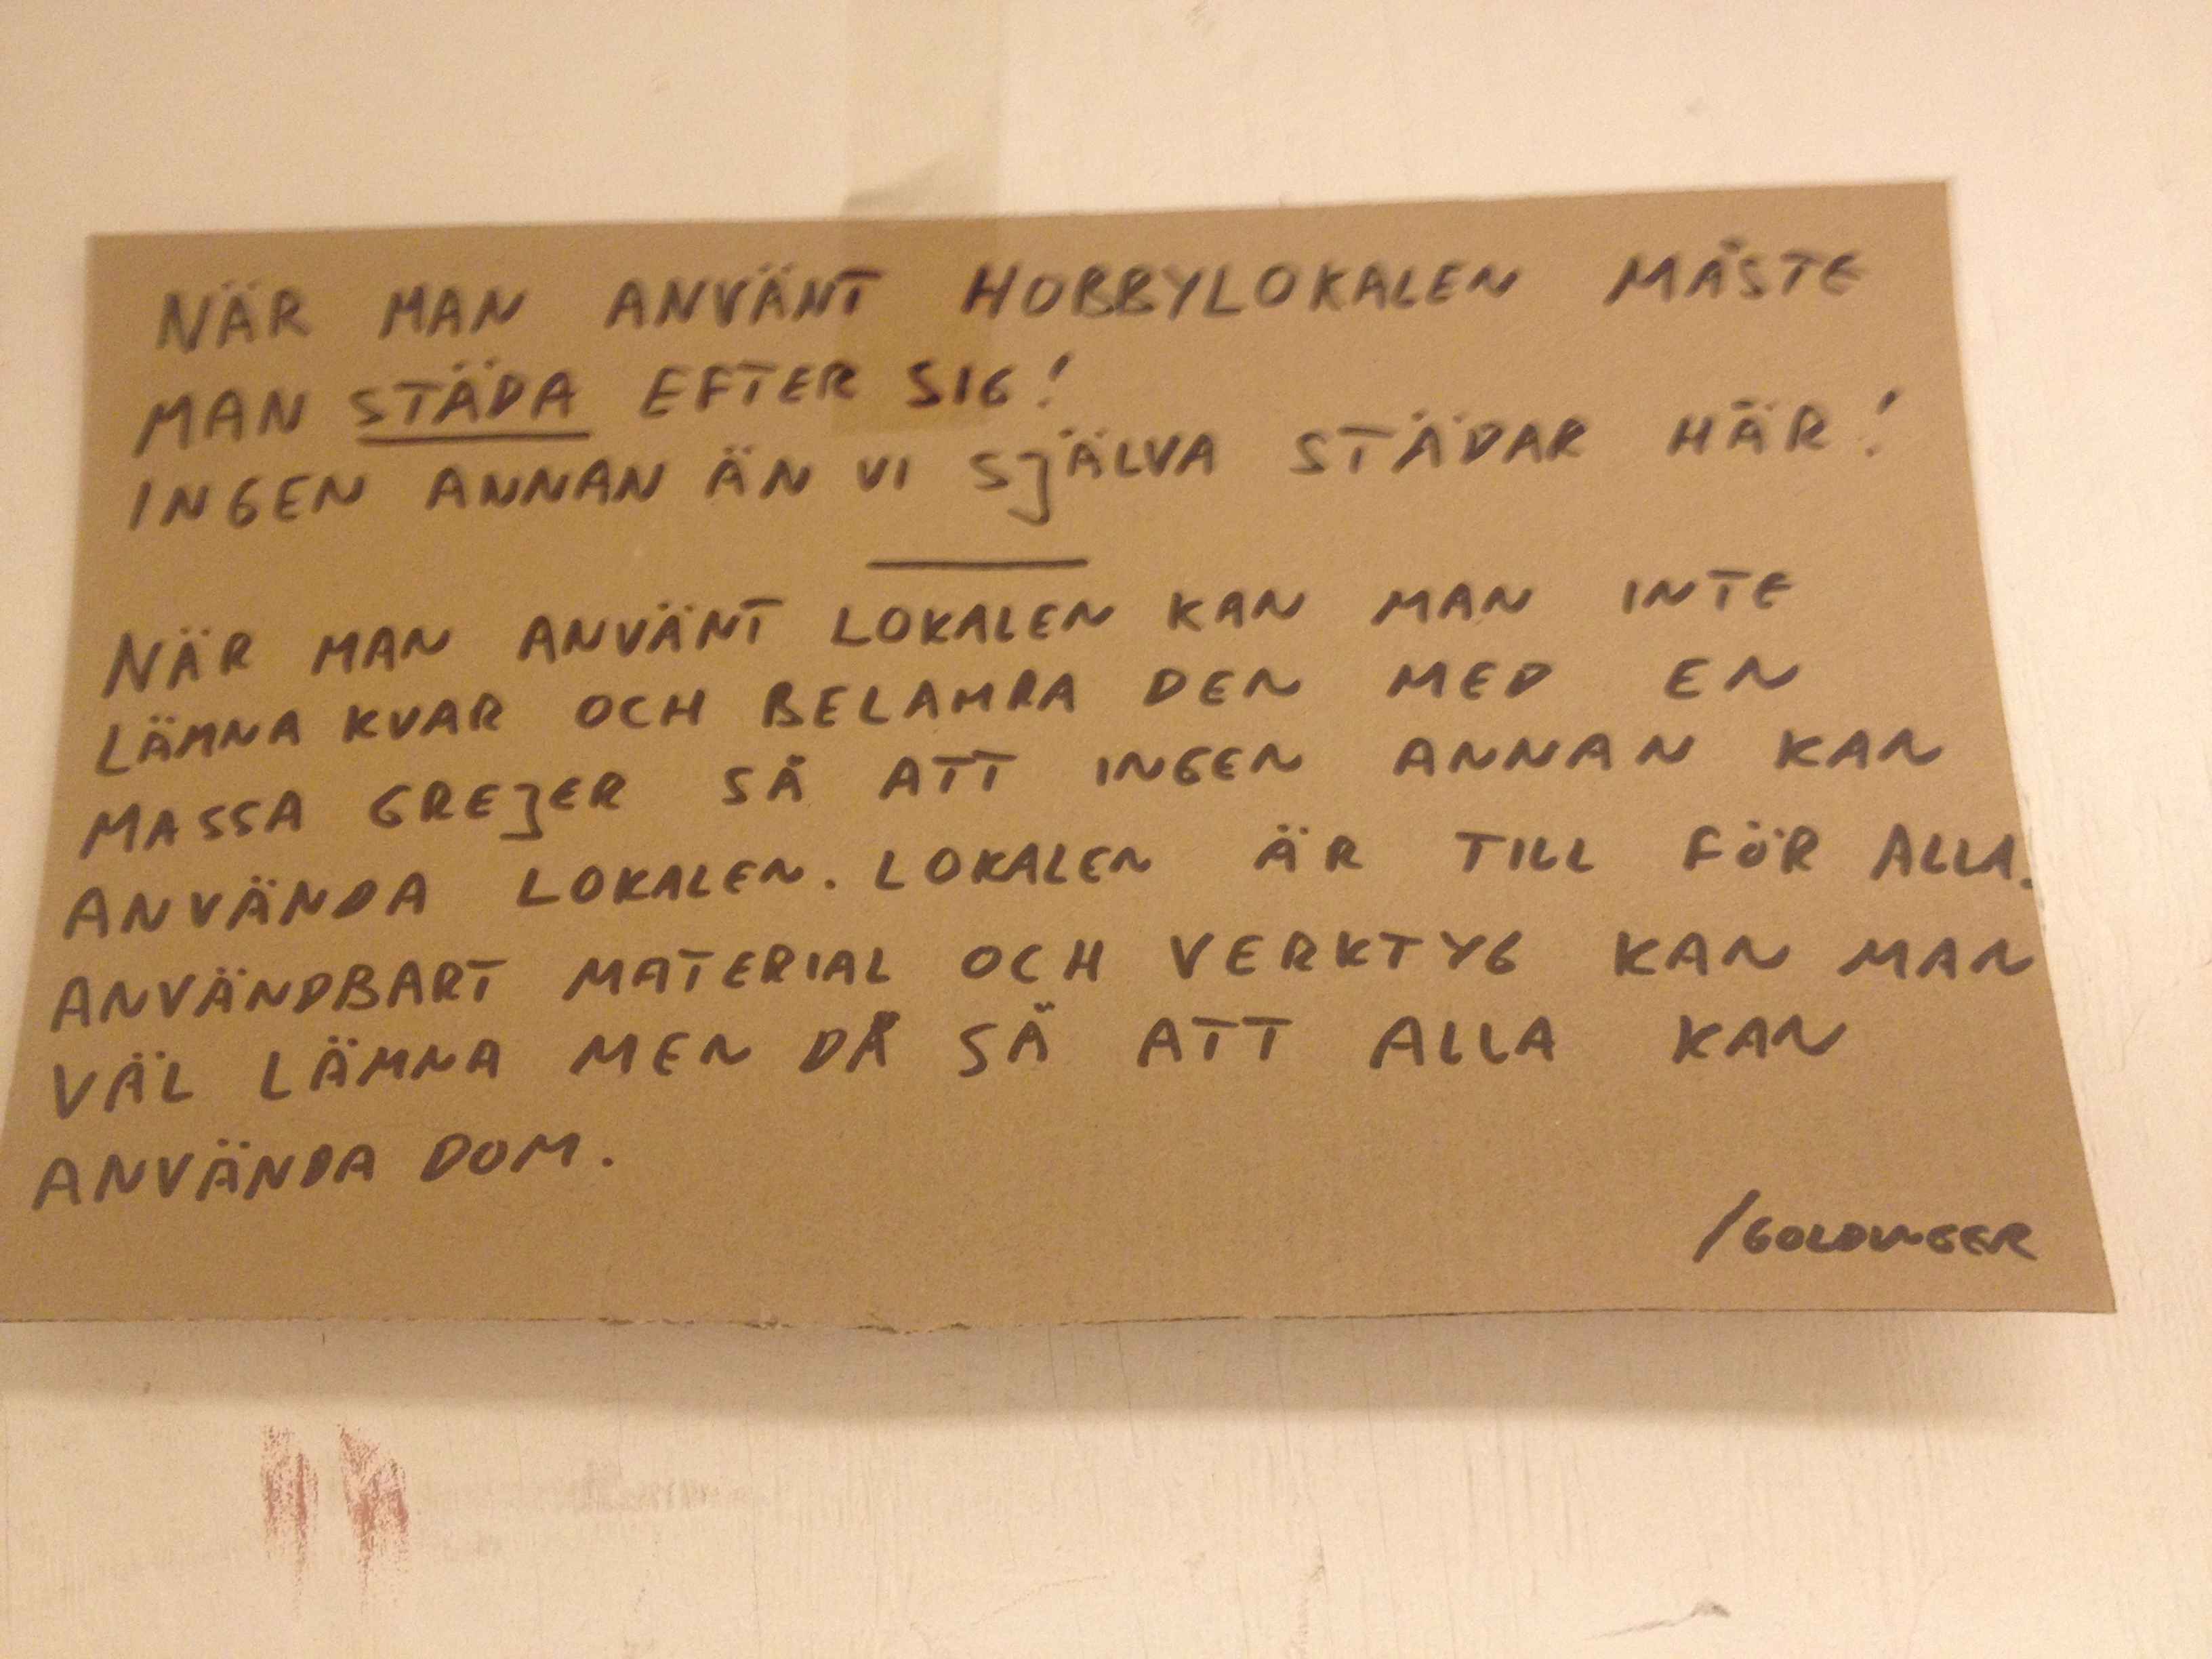 NÄR MAN ANVÄNT HOBBYLOKALEN MÅSTE
MAN STÄDA EFTER SIG!
INGEN ANNAN ÄN VI SJÄLVA STÄDAR HÄR!
NÄR MAN ANVÄNT LOKALEN KAN MAN INTE
LÄMNA KVAR OCH BELAMRA DEN MED EN
MASSA GREJER SÅ ATT INGEN ANNAN KAN
ANVÄNDA LOKALEN. LOKALEN ÄR TILL FÖR ALLA.
ANVÄNDBART MATERIAL OCH VERKTYG KAN MAN
VÄL LÄMNA MEN DÅ SÅ ATT ALLA KAN
ANVÄNDA DOM.
/GOLDINGER